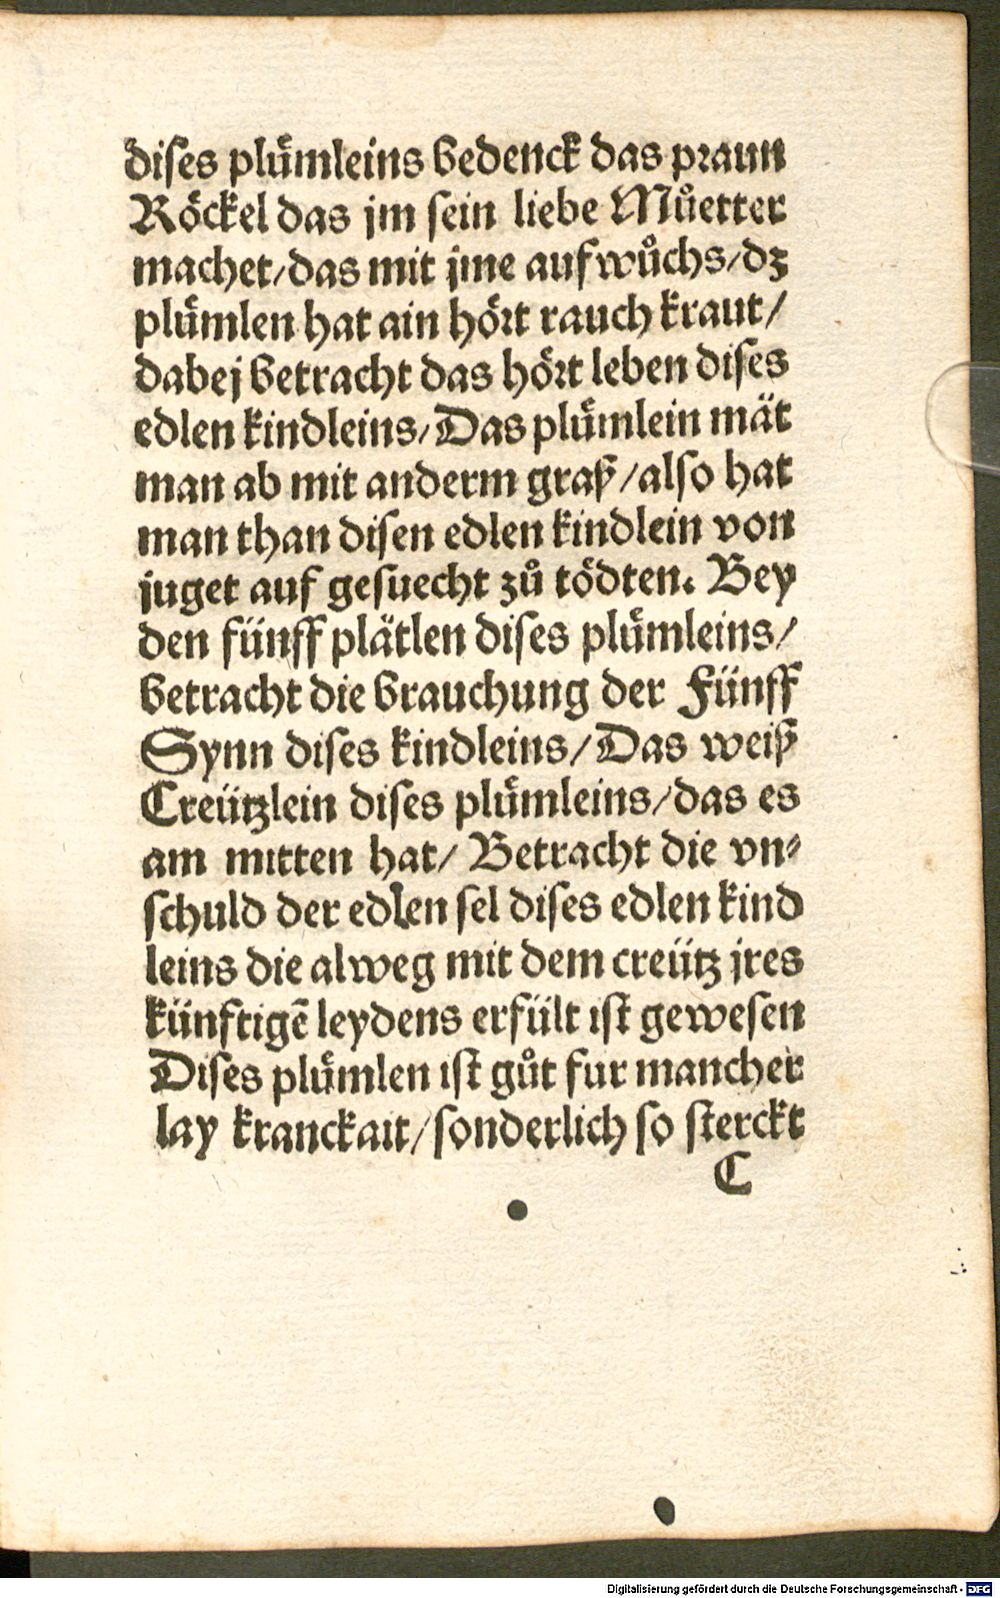 dises plümleins bedenck das praun
Röckel das jm sein liebe Můetter
machet/das mit jme aufwůchs/dz
plümlen hat ain hört rauch kraut/
dabej betracht das hört leben dises
edlen kindleins/Das plümlein mät
man ab mit anderm graß/also hat
man than disen edlen kindlein von
juget auf gesuecht zů tödten. Bey
den fünff plätlen dises plümleins/
betracht die brauchung der Fünff
Synn dises kindleins/Das weiß
Creützlein dises plümleins/das es
am mitten hat/ Betracht die vn⸗
schuld der edlen sel dises edlen kind
leins die alweg mit dem creütz jres
künftigē leydens erfült ist gewesen
Dises plümlen ist gůt fur mancher
lay kranckait/sonderlich so sterckt
C
Digitalisierung gefördert durch die Deutsche Forschungsgemeinschaft - DFG